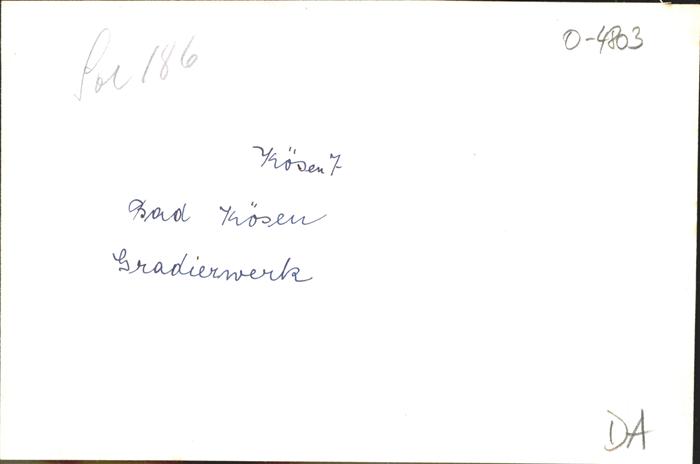 Sol 186
O-4803
Kösen 7
Bad Kösen
Gradierwerk
DA